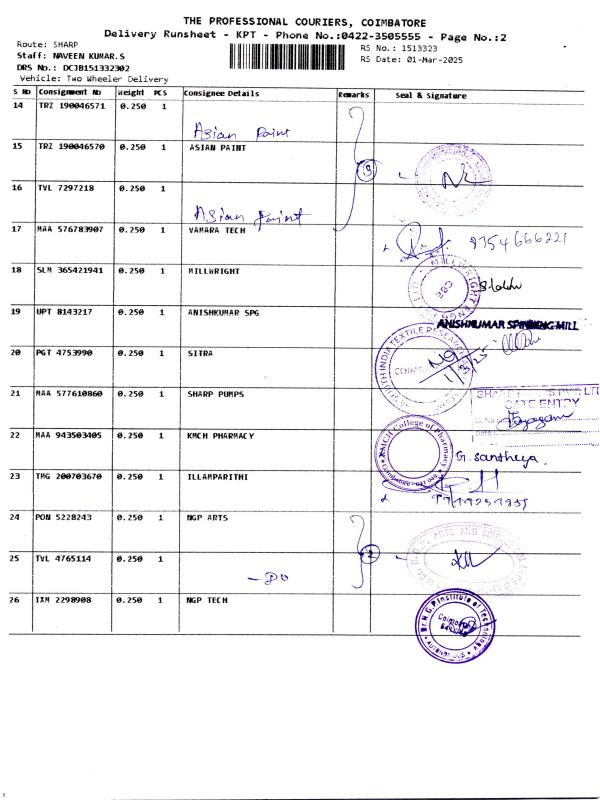 THE PROFESSIONAL COURIERS, COIMBATORE
Delivery Runsheet - KPT - Phone No.:0422-3505555 - Page No.:2
Route: SHARP
RS No.: 1513323
Staff: NAVEEN KUMAR.S
RS Date: 01-Mar-2025
DRS No.: DCJB151332302
Vehicle: Two Wheeler Delivery
S No Consignment No Weight PCS Consignee Details Remarks Seal & Signature
14 TRZ 190046571 0.250 1 Asian Paint
15 TRZ 190046570 0.250 1 ASIAN PAINT
16 TVL 7297218 0.250 1 Asian Paint
17 MAA 576783907 0.250 1 VAMARA TECH
18 SLM 365421941 0.250 1 MILLWRIGHT
19 UPT 8143217 0.250 1 ANISHKUMAR SPG
ANISHKUMAR SPINNING MILL
20 PGT 4753990 0.250 1 SITRA
1/3/25
21 MAA 577610860 0.250 1 SHARP PUMPS
GATE ENTRY
22 MAA 943503405 0.250 1 KMCH PHARMACY
KMCH College of Pharmacy
G. santheya.
23 TMG 200703670 0.250 1 ILLAMPARITHI
24 PON 5228243 0.250 1 NGP ARTS
2
25 TVL 4765114 0.250 1 - DO
26 IXM 2298908 0.250 1 NGP TECH
Dr. N.G.P. Institute of Technology
AUTONOMOUS